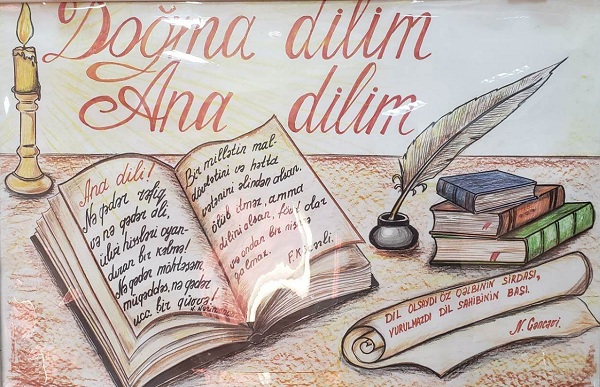 Doğma dilim
Ana dilim
Ana dili!
Nə qədər rəfiq,
və nə qədər ali,
ülvi hissləri oyan-
dıran bir kəlmə!
Nə qədər möhtəşəm,
müqəddəs, nə qədər
uca bir qüvvə!
Bir millətin mal-
dövlətini və hətta
vətənini əlindən alsan,
ölüb etməz, amma
dilini alsan, fövt olar
və ondan bir nişanə
qalmaz.
DİL OLSAYDI ÖZ QƏLBİNİN SİRDAŞI,
VURULMAZDI DİL SAHİBİNİN BAŞI.
N. Gəncəvi.